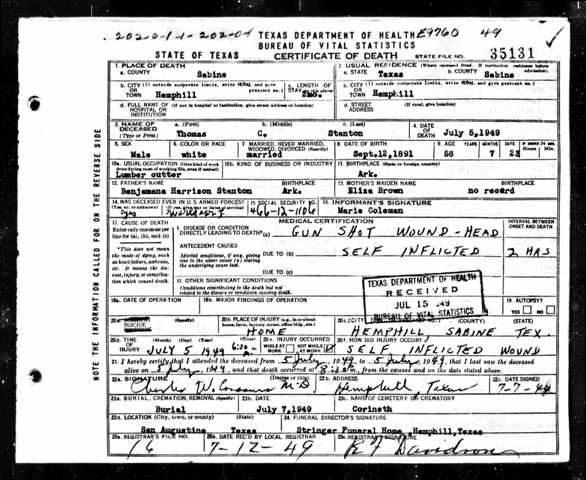 TEXAS DEPARTMENT OF HEALTH E9760 49
BUREAU OF VITAL STATISTICS
STATE OF TEXAS CERTIFICATE OF DEATH STATE FILE NO. 35131
1. PLACE OF DEATH
a. COUNTY Sabine
a. STATE Texas
b. COUNTY Sabine
b. CITY (If outside corporate limits, write RURAL and give precinct no.)
OR TOWN Hemphill
c. LENGTH OF
c. CITY
OR TOWN Hemphill
d. FULL NAME OF (If not in hospital or institution, give street address or location)
HOSPITAL OR INSTITUTION
d. STREET ADDRESS (If rural, give location)
3. NAME OF DECEASED (Type or Print)
a. (First) Thomas
b. (Middle) C.
c. (Last) Stanton
4. DATE OF DEATH July 5,1949
5. SEX Male
6. COLOR OR RACE white
7. MARRIED, NEVER MARRIED, WIDOWED, DIVORCED (Specify) married
8. DATE OF BIRTH Sept.12,1891
9. AGE 58 7 23
10a. USUAL OCCUPATION
Lumber cutter
10b. KIND OF BUSINESS OR INDUSTRY
11. BIRTHPLACE (State or foreign country) Ark.
12. FATHER'S NAME Benjamana Harrison Stanton
BIRTHPLACE Ark.
13. MOTHER'S MAIDEN NAME Eliza Brown
BIRTHPLACE no record
14. WAS DECEASED EVER IN U.S. ARMED FORCES?
yes
15. SOCIAL SECURITY NO. 466-12-1106
16. INFORMANT'S SIGNATURE Marie Coleman
MEDICAL CERTIFICATION
17. CAUSE OF DEATH
Enter only one cause per line for (a), (b), and (c)
I. DISEASE OR CONDITION DIRECTLY LEADING TO DEATH* (a) GUN SHOT WOUND-HEAD
INTERVAL BETWEEN ONSET AND DEATH
*This does not mean the mode of dying, such as heart failure, asthenia, etc. It means the disease, injury, or complication which caused death.
ANTECEDENT CAUSES
Morbid conditions, if any, giving rise to the above cause (a) stating the underlying cause last.
DUE TO (b) SELF INFLICTED 2 HRS
DUE TO (c)
II. OTHER SIGNIFICANT CONDITIONS
Conditions contributing to the death but not related to the disease or condition causing death.
TEXAS DEPARTMENT OF HEALTH
RECEIVED
JUL 15 '49
BUREAU OF VITAL STATISTICS
18a. DATE OF OPERATION
18b. MAJOR FINDINGS OF OPERATION
19. AUTOPSY?
YES NO
SUICIDE
20b. PLACE OF INJURY (e.g., in or about home, farm, factory, street, office bldg., etc.)
HOME
20c. (CITY, TOWN) (COUNTY) (STATE)
HEMPHILL, SABINE TEX.
20d. TIME OF INJURY JULY 5 1949
20e. INJURY OCCURRED
WHILE AT WORK NOT WHILE AT WORK
20f. HOW DID INJURY OCCUR?
SELF INFLICTED WOUND
21. I hereby certify that I attended the deceased from 5 July, 1949, to 5 July, 1949, that I last saw the deceased
alive on 5 July, 1949, and that death occurred at m., from the causes and on the date stated above.
22a. SIGNATURE (Degree or title)
Charles W. M.D.
22b. ADDRESS Hemphill Texas
22c. DATE SIGNED 7-7-49
23a. BURIAL, CREMATION, REMOVAL (Specify) Burial
23b. DATE July 7,1949
23c. NAME OF CEMETERY OR CREMATORY Corineth
23d. LOCATION (City, town, or county) (State)
San Augustine Texas
24. FUNERAL DIRECTOR'S SIGNATURE
Stringer Funeral Home, Hemphill,Texas
25a. REGISTRAR'S FILE NO. 16
25b. DATE REC'D BY LOCAL REGISTRAR 7-12-49
25c. REGISTRAR'S SIGNATURE
NOTE THE INFORMATION CALLED FOR ON THE REVERSE SIDE